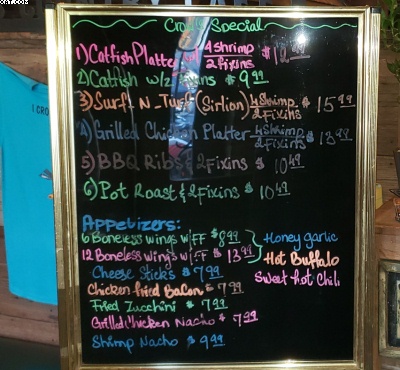 Crow's Special
1) Catfish Platter w/ 4 shrimp $ 12.99
2 fixins
2) Catfish w/2 fixins $ 9.99
3) Surf N Turf (Sirlion) 4 Shrimp $ 15.99
2 Fixins
4) Grilled Chicken Platter 4 Shrimp $ 13.99
2 Fixins
5) BBQ Ribs & 2 Fixins $ 10.49
6) Pot Roast & 2 Fixins $ 10.49
Appetizers:
6 Boneless wings w/FF $8.99
12 Boneless wings w/FF $ 13.99
Honey garlic
Hot Buffalo
Sweet hot Chili
Cheese Sticks $ 7.99
Chicken fried Bacon $ 7.99
Fried Zucchini $ 7.99
Grilled Chicken Nacho $ 7.99
Shrimp Nacho $ 9.99
I CRO